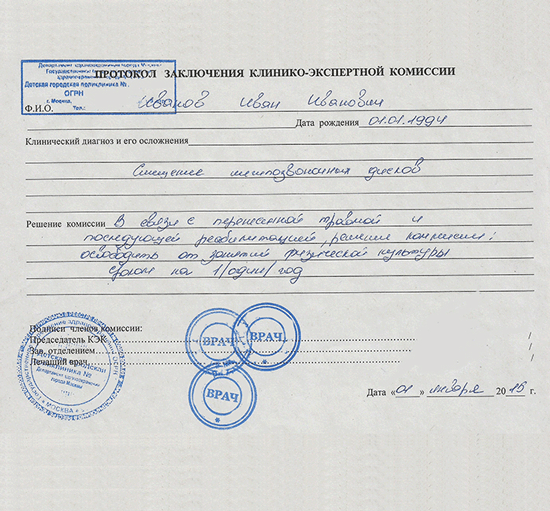 Департамент здравоохранения города Москвы
Государственное
здравоохранения
Детская городская поликлиника №
ОГРН
г. Москва, Тел.:
ПРОТОКОЛ ЗАКЛЮЧЕНИЯ КЛИНИКО-ЭКСПЕРТНОЙ КОМИССИИ
Ф.И.О. Иванов Иван Иванович
Дата рождения 01.01.1994
Клинический диагноз и его осложнения
Смещение межпозвоночных дисков
Решение комиссии В связи с перенесенной травмой и
последующей реабилитацией, решение комиссии:
освободить от занятий физической культуры
сроком на 1/один/ год
Подписи членов комиссии:
Председатель КЭК
Зав. отделением
Лечащий врач
ВРАЧ
ВРАЧ
ВРАЧ
поликлиника №
Департамент здравоохранения
города Москвы
МОСКВА
Дата «01» января 2015 г.